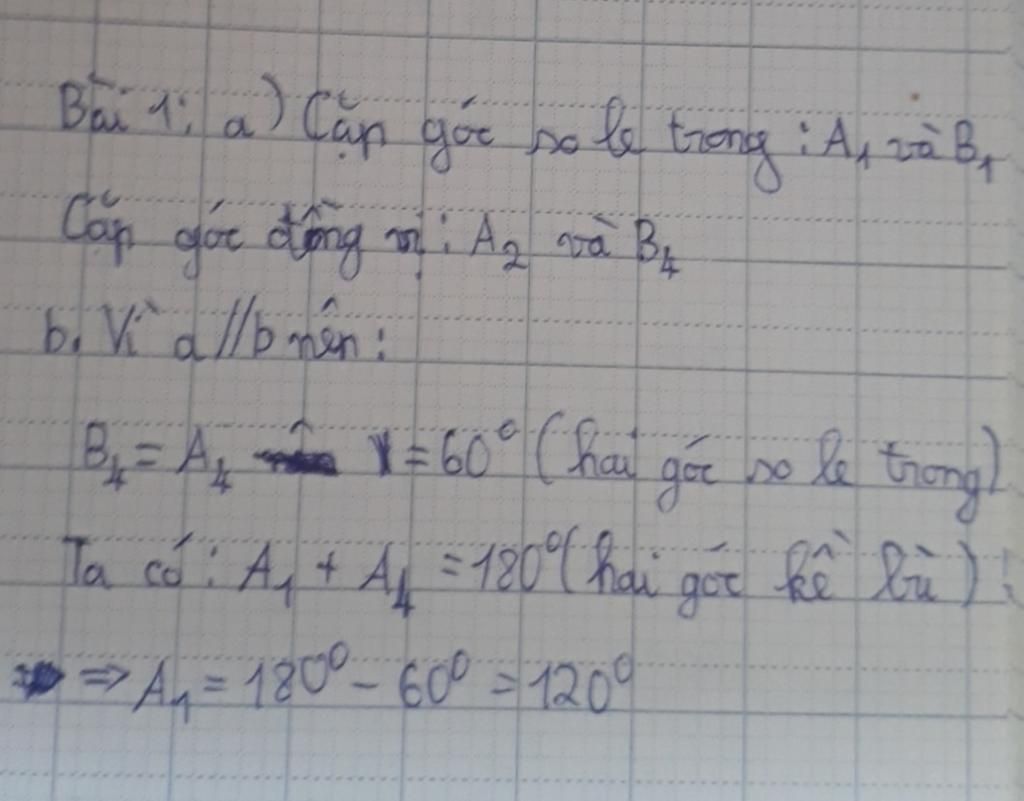 Bài 1: a) Cặp góc so le trong : A₁ và B₁
Cặp góc đồng vị : A₂ và B₄
b. Vì a // b nên :
B₄ = A₄ = 60° (hai góc so le trong)
Ta có : A₁ + A₄ = 180° (hai góc kề bù) :
⇒ A₁ = 180° - 60° = 120°